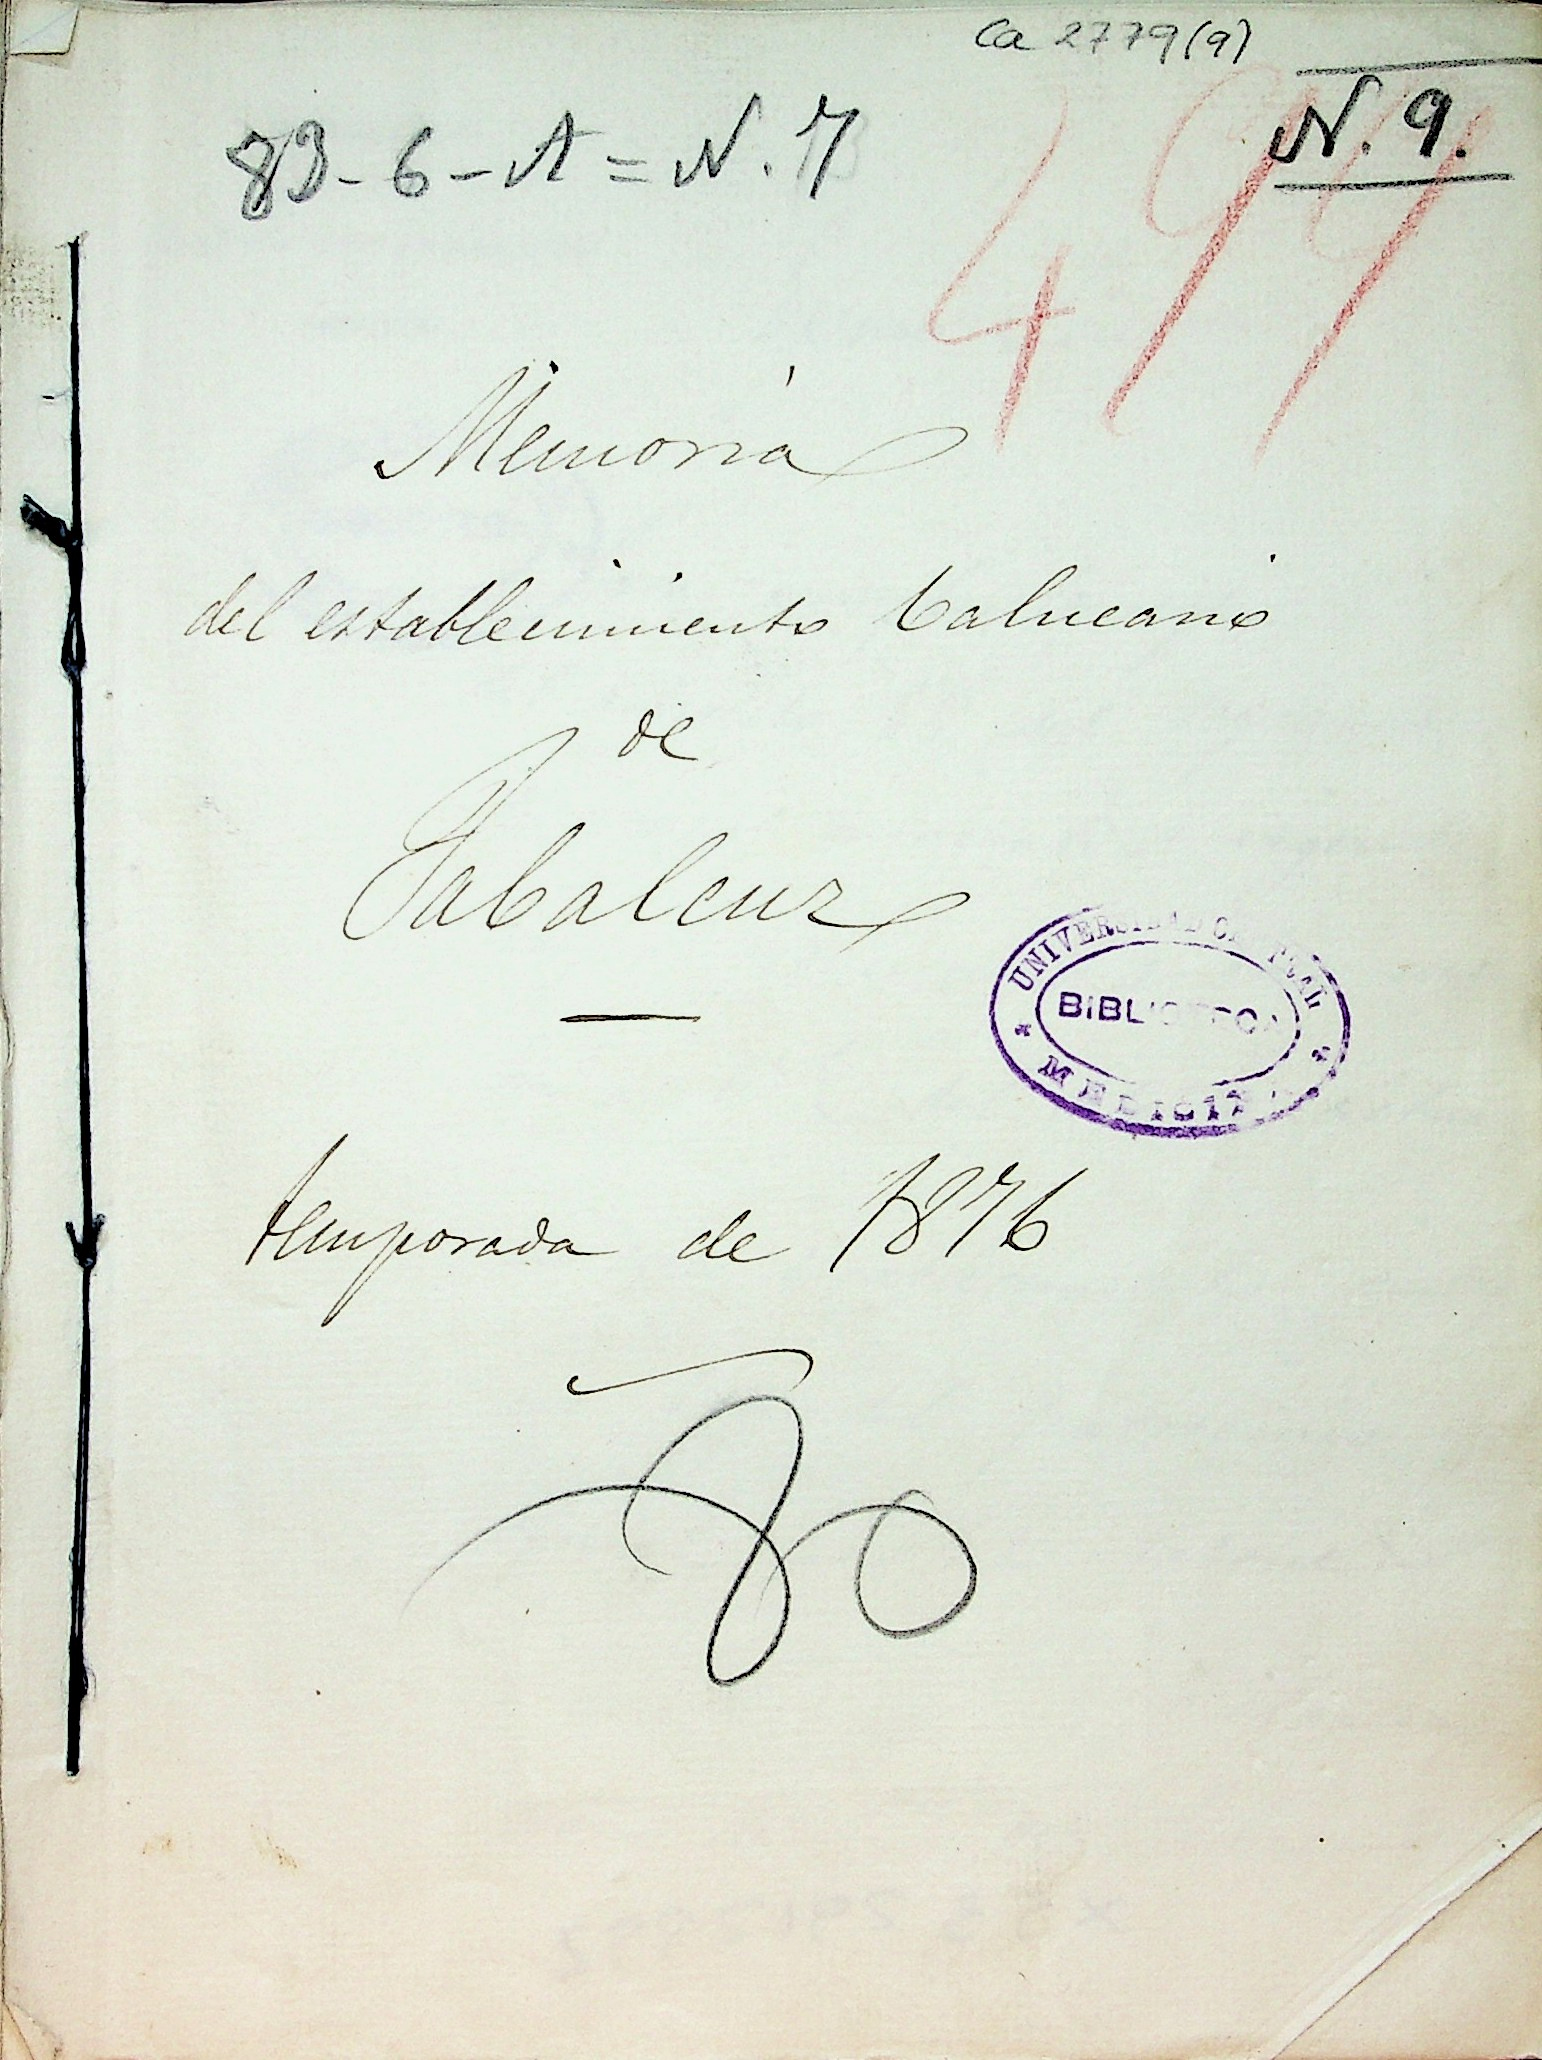 Ca 2779(9)
N. 9.
83-6-A=N. 7
Memoria
del establecimiento balneario
de
Jabalcuz
UNIVERSIDAD CENTRAL
BIBLIOTECA
MEDICINA
temporada de 1876